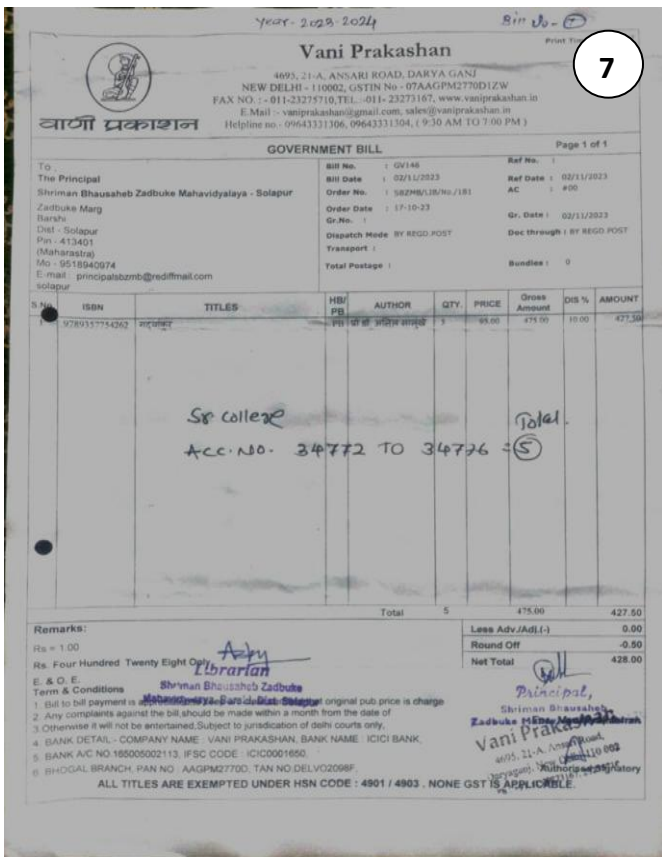 Year - 2023-2024
Bill No - 7
7
Vani Prakashan
4695, 21-A, ANSARI ROAD, DARYA GANJ
NEW DELHI - 110002, GSTIN No - 07AAGPM2770D1ZW
FAX NO. : -011-23275710, TEL. -011- 23273167, www.vaniprakashan.in
E.Mail :- vaniprakashan@gmail.com, sales@vaniprakashan.in
Helpline no.- 09643331306, 09643331304, ( 9:30 AM TO 7:00 PM )
वाणी प्रकाशन
GOVERNMENT BILL
Page 1 of 1
To ,
The Principal
Shriman Bhausaheb Zadbuke Mahavidyalaya - Solapur
Zadbuke Marg
Barshi
Dist - Solapur
Pin - 413401
(Maharastra)
Mo - 9518940974
E-mail : principalsbzmb@rediffmail.com
solapur
Bill No. : GV146
Bill Date : 02/11/2023
Order No. : SBZMB/LIB/No./181
Order Date : 17-10-23
Gr.No. :
Dispatch Mode BY REGD.POST
Transport :
Total Postage :
Ref No. :
Ref Date : 02/11/2023
AC : #00
Gr. Date : 02/11/2023
Doc through : BY REGD.POST
Bundles : 0
S.No. ISBN TITLES HB/PB AUTHOR QTY. PRICE Gross Amount DIS % AMOUNT
9789357754262 PB 5 95.00 475.00 10.00 427.50
Sr College
Total.
Acc. No. 34772 TO 34776 = 5
Total 5 475.00 427.50
Remarks:
Rs = 1.00
Rs. Four Hundred Twenty Eight Only
Less Adv./Adj.(-) 0.00
Round Off -0.50
Net Total 428.00
Librarian
Shriman Bhausaheb Zadbuke
Principal,
Shriman Bhausaheb
E. & O. E.
Term & Conditions
1. Bill to bill payment is original pub price is charge
2. Any complaints against the bill,should be made within a month from the date of
3.Otherwise it will not be entertained,Subject to jurisdication of delhi courts only,
4. BANK DETAIL - COMPANY NAME : VANI PRAKASHAN, BANK NAME : ICICI BANK,
5. BANK A/C NO.165005002113, IFSC CODE : ICIC0001650,
6. BHOGAL BRANCH, PAN NO : AAGPM2770D, TAN NO.DELVO2098F,
Vani Prakashan
4695, 21-A, Ansari Road,
Daryaganj, New Delhi-110 002
Authorised Signatory
ALL TITLES ARE EXEMPTED UNDER HSN CODE : 4901 / 4903 . NONE GST IS APPLICABLE.